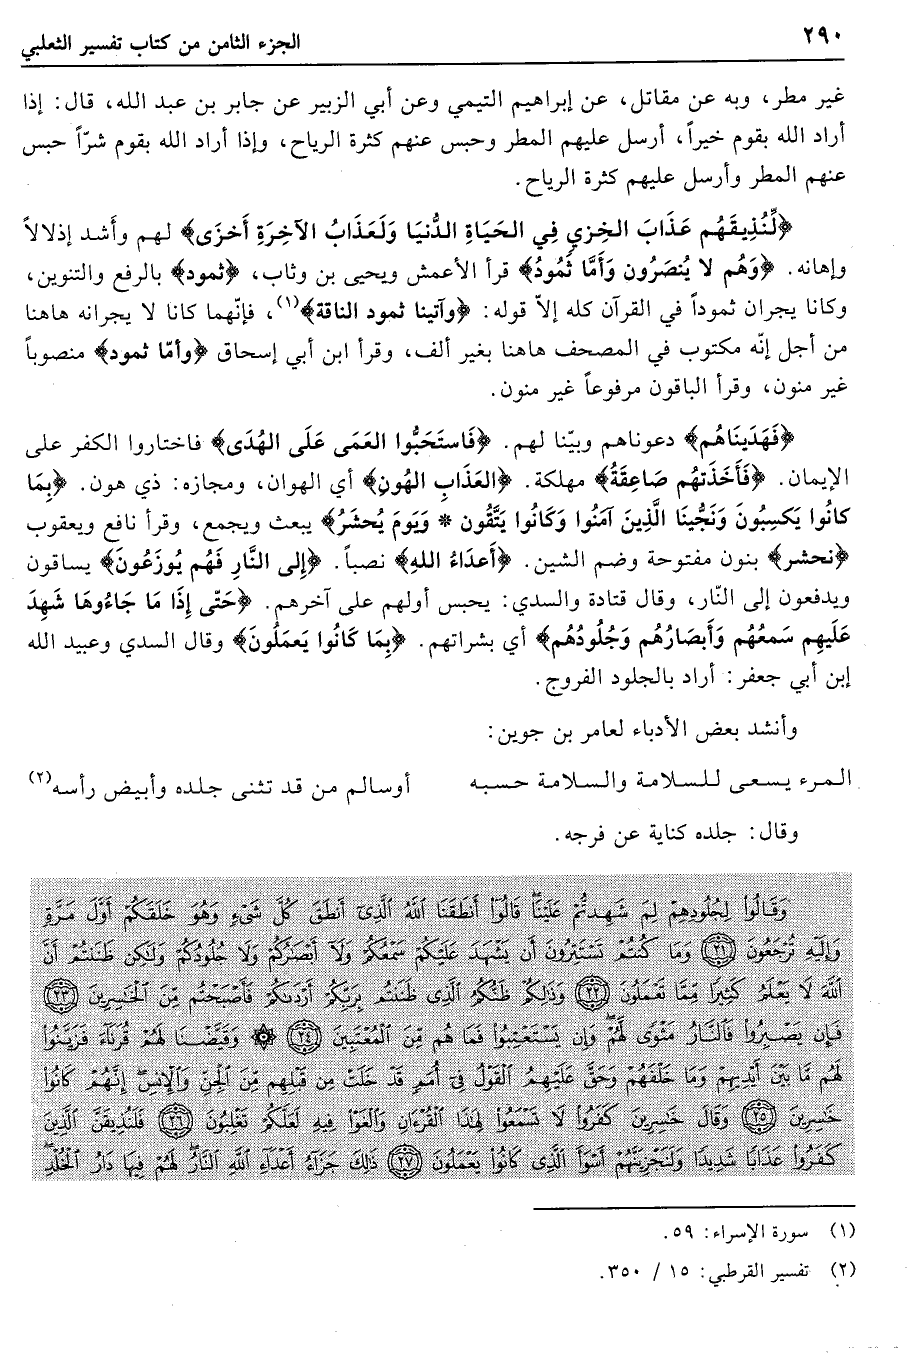 ٢٩٠
الجزء الثامن من كتاب تفسير الثعلبي
غير مطر، وبه عن مقاتل، عن إبراهيم التيمي وعن أبي الزبير عن جابر بن عبد الله، قال: إذا
أراد الله بقوم خيراً، أرسل عليهم المطر وحبس عنهم كثرة الرياح، وإذا أراد الله بقوم شرّاً حبس
عنهم المطر وأرسل عليهم كثرة الرياح.
﴿لِّنُذِيقَهُم عَذَابَ الخِزي فِي الحَيَاةِ الدُّنيَا وَلَعَذَابُ الآخِرَةِ أَخزَى﴾ لهم وأشد إذلالاً
وإهانه. ﴿وَهُم لا يُنصَرُون وَأَمَّا ثَمُودُ﴾ قرأ الأعمش ويحيى بن وثاب، ﴿ثمود﴾ بالرفع والتنوين،
وكانا يجران ثموداً في القرآن كله إلاّ قوله: ﴿وآتينا ثمود الناقة﴾(١)، فإنّهما كانا لا يجرانه هاهنا
من أجل إنّه مكتوب في المصحف هاهنا بغير ألف، وقرأ ابن أبي إسحاق ﴿وأمّا ثمود﴾ منصوباً
غير منون، وقرأ الباقون مرفوعاً غير منون.
﴿فَهَدَينَاهُم﴾ دعوناهم وبيّنا لهم. ﴿فَاستَحَبُّوا العَمَى عَلَى الهُدَى﴾ فاختاروا الكفر على
الإيمان. ﴿فَأَخَذَتهُم صَاعِقَةُ﴾ مهلكة. ﴿العَذَابِ الهُونِ﴾ أي الهوان، ومجازه: ذي هون. ﴿بِمَا
كانُوا يَكسِبُونَ وَنَجَّينَا الَّذِينَ آمَنُوا وَكَانُوا يَتَّقُون * وَيَومَ يُحشَرُ﴾ يبعث ويجمع، وقرأ نافع ويعقوب
﴿نحشر﴾ بنون مفتوحة وضم الشين. ﴿أَعدَاءُ اللهِ﴾ نصباً. ﴿إِلى النَّارِ فَهُم يُوزَعُونَ﴾ يساقون
ويدفعون إلى النّار، وقال قتادة والسدي: يحبس أولهم على آخرهم. ﴿حَتَّى إِذَا مَا جَاءُوهَا شَهِدَ
عَلَيهِم سَمعُهُم وَأَبصَارُهُم وَجُلُودُهُم﴾ أي بشراتهم. ﴿بِمَا كَانُوا يَعمَلُونَ﴾ وقال السدي وعبيد الله
إبن أبي جعفر: أراد بالجلود الفروج.
وأنشد بعض الأدباء لعامر بن جوين:
المرء يسعى للسلامة والسلامة حسبه أوسالم من قد تثنى جلده وأبيض رأسه(٢)
وقال: جلده كناية عن فرجه.
وَقَالُوا لِجُلُودِهِمْ لِمَ شَهِدتُّمْ عَلَيْنَا ۖ قَالُوا أَنطَقَنَا اللَّهُ الَّذِي أَنطَقَ كُلَّ شَيْءٍ وَهُوَ خَلَقَكُمْ أَوَّلَ مَرَّةٍ
وَإِلَيْهِ تُرْجَعُونَ ﴿٢١﴾ وَمَا كُنتُمْ تَسْتَتِرُونَ أَن يَشْهَدَ عَلَيْكُمْ سَمْعُكُمْ وَلَا أَبْصَارُكُمْ وَلَا جُلُودُكُمْ وَلَٰكِن ظَنَنتُمْ أَنَّ
اللَّهَ لَا يَعْلَمُ كَثِيرًا مِّمَّا تَعْمَلُونَ ﴿٢٢﴾ وَذَٰلِكُمْ ظَنُّكُمُ الَّذِي ظَنَنتُم بِرَبِّكُمْ أَرْدَاكُمْ فَأَصْبَحْتُم مِّنَ الْخَاسِرِينَ ﴿٢٣﴾
فَإِن يَصْبِرُوا فَالنَّارُ مَثْوًى لَّهُمْ ۖ وَإِن يَسْتَعْتِبُوا فَمَا هُم مِّنَ الْمُعْتَبِينَ ﴿٢٤﴾ ۞ وَقَيَّضْنَا لَهُمْ قُرَنَاءَ فَزَيَّنُوا
لَهُم مَّا بَيْنَ أَيْدِيهِمْ وَمَا خَلْفَهُمْ وَحَقَّ عَلَيْهِمُ الْقَوْلُ فِي أُمَمٍ قَدْ خَلَتْ مِن قَبْلِهِم مِّنَ الْجِنِّ وَالْإِنسِ ۖ إِنَّهُمْ كَانُوا
خَاسِرِينَ ﴿٢٥﴾ وَقَالَ الَّذِينَ كَفَرُوا لَا تَسْمَعُوا لِهَٰذَا الْقُرْآنِ وَالْغَوْا فِيهِ لَعَلَّكُمْ تَغْلِبُونَ ﴿٢٦﴾ فَلَنُذِيقَنَّ الَّذِينَ
كَفَرُوا عَذَابًا شَدِيدًا وَلَنَجْزِيَنَّهُمْ أَسْوَأَ الَّذِي كَانُوا يَعْمَلُونَ ﴿٢٧﴾ ذَٰلِكَ جَزَاءُ أَعْدَاءِ اللَّهِ النَّارُ ۖ لَهُمْ فِيهَا دَارُ الْخُلْدِ ۖ
(١) سورة الإسراء: ٥٩.
(٢) تفسير القرطبي: ١٥ / ٣٥٠.